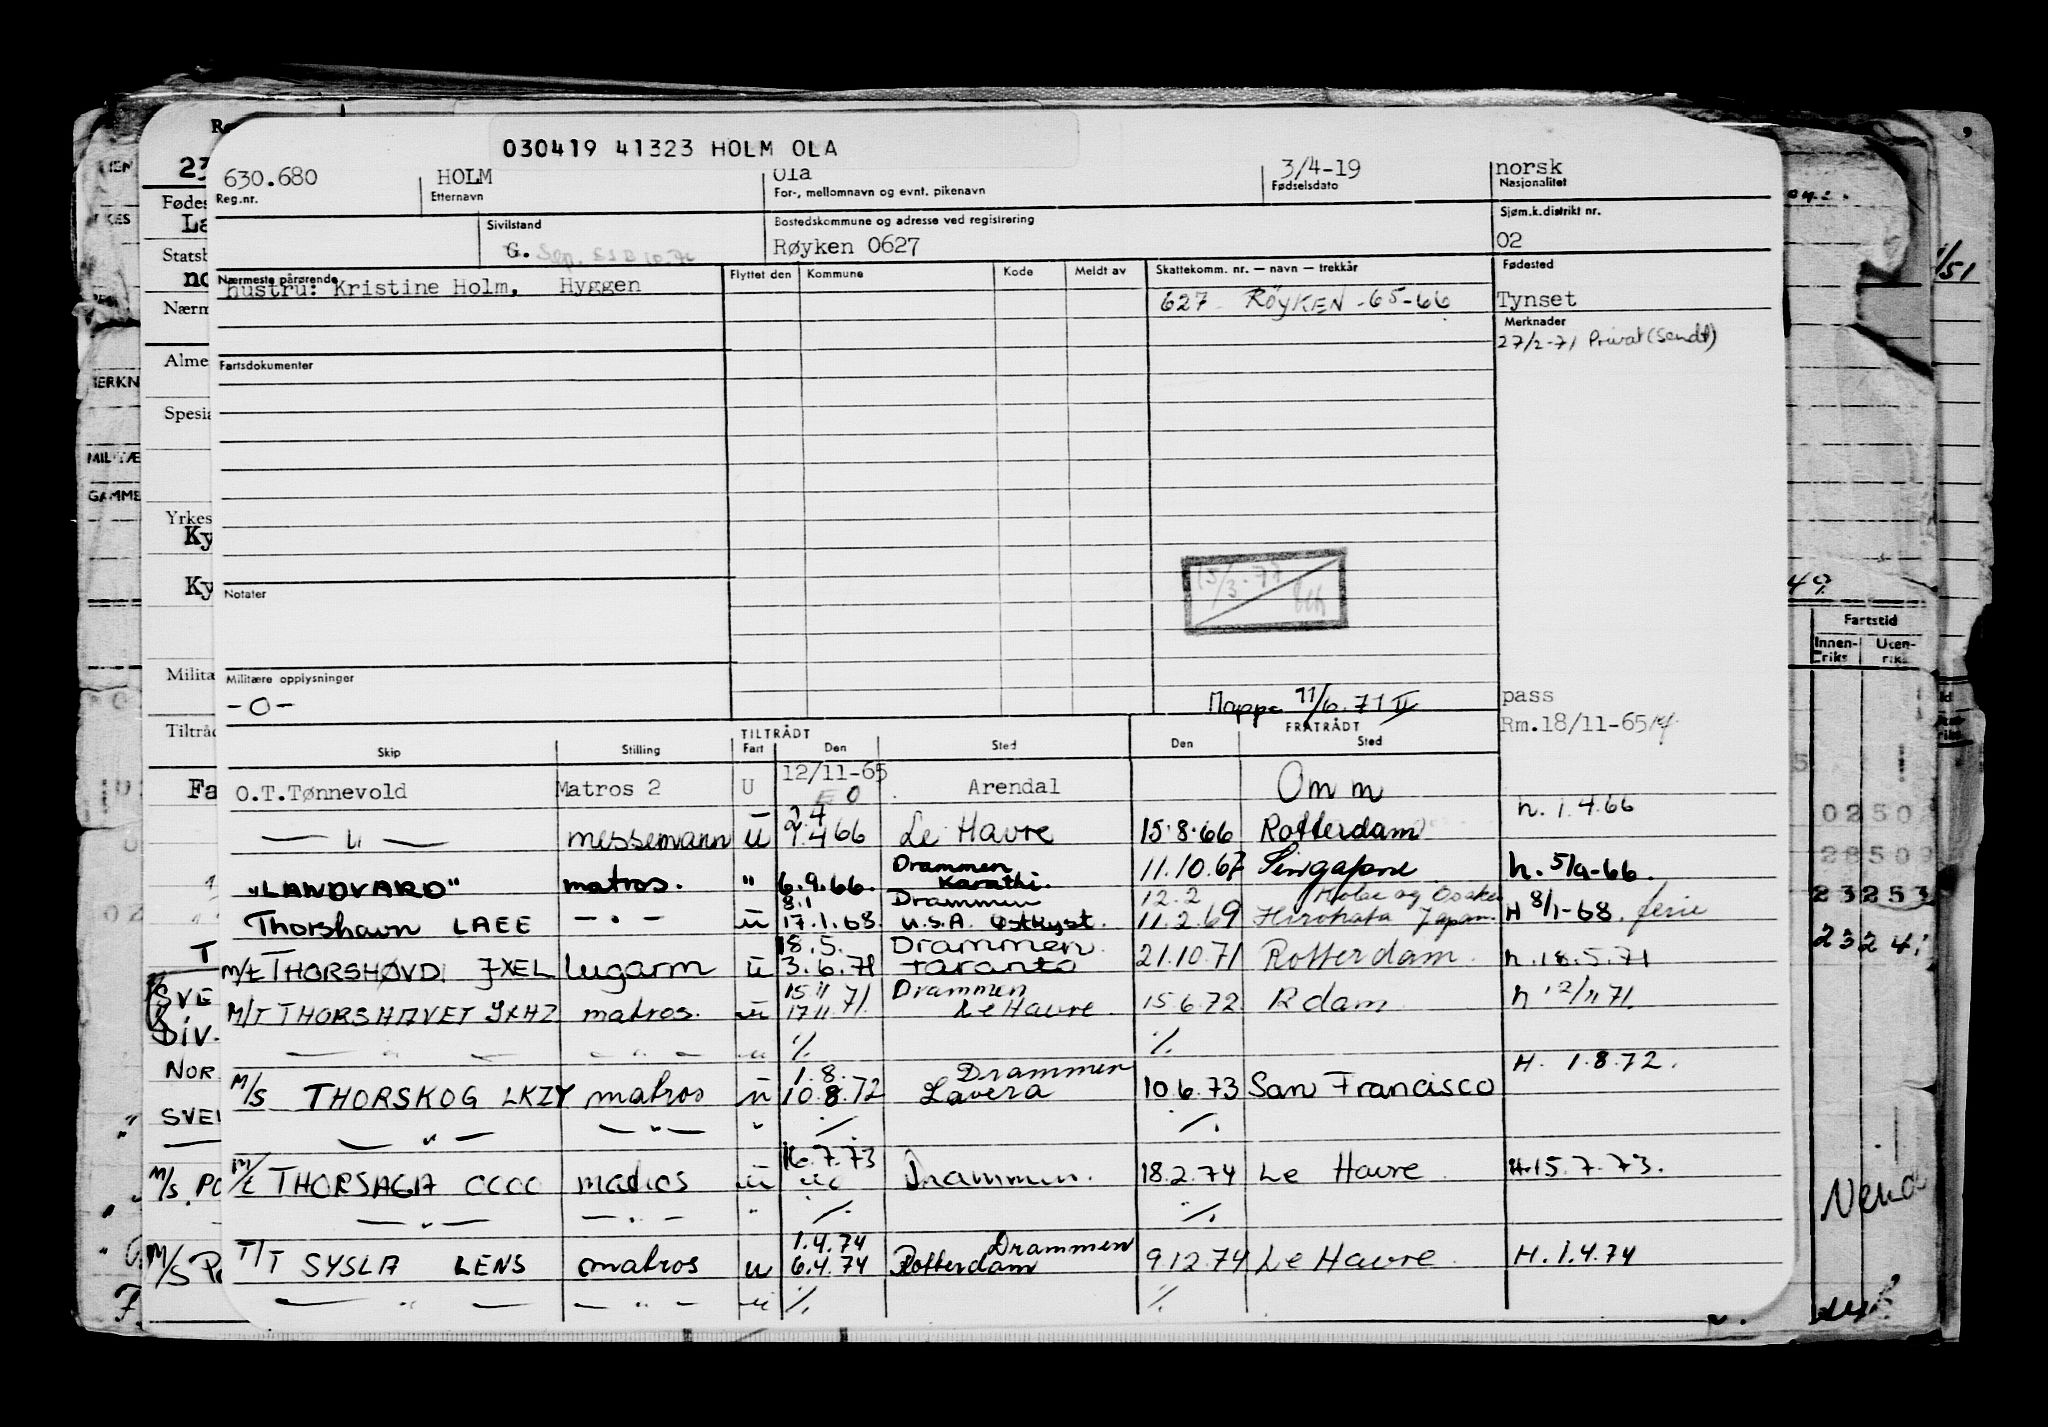 030419 41323 HOLM OLA
630.680 HOLM Ola 3/4-19 norsk
Reg.nr. Etternavn For-, mellomnavn og evnt. pikenavn Fødselsdato Nasjonalitet
Sivilstand Bostedskommune og adresse ved registrering Sjøm.k.distrikt nr.
G. Røyken 0627 02
Nærmeste pårørende Flyttet den Kommune Kode Meldt av Skattekomm. nr. — navn — trekkår Fødested
hustru: Kristine Holm, Hyggen 627 RØYKEN -65-66 Tynset
Merknader
27/2-71 Privat (Sendt)
Fartsdokumenter
Notater
15/3-77
Militære opplysninger
-O-
Mappe 11/6.71 II
pass
Rm.18/11-65
TILTRÅDT FRATRÅDT
Skip Stilling Fart Den Sted Den Sted
O.T.Tønnevold Matros 2 U 12/11-65 Arendal Omm
— " — messemann u 2.4 7.4 66 Le Havre 15.8.66 Rotterdam h. 1.4.66
"LANDVARD" matros. " 6.9.66. Drammen Karathi. 11.10.67 Singapore h. 5/9-66.
Thorshavn LAEE — " — u 8.1 17.1.68. Drammen U.S.A. Østkyst. 12.2 11.2.69 Kobe og Osaka Hirohata Japan. H 8/1-68. ferie
M/t THORSHØVDI JXEL lugarm u 18.5. 3.6.71 Drammen Taranto 21.10.71 Rotterdam. h.18.5.71
M/T THORSHAVET JXHZ matros. u 15/11 71 17/11 Drammen Le Havre 15.6.72 Rdam h 12/11 71.
— " — — " — u % %
M/S THORSKOG LKZY matros u 1.8. 10.8.72 Drammen Lavera 10.6.73 San Francisco H. 1.8.72.
— " — — " — " % %
M/t THORSAGA CCCC matros u 16.7.73 Drammen. 18.2.74 Le Havre H.15.7.73.
— " — — " — " % %
T/T SYSLA LENS matros u 1.4.74 6.4.74 Drammen Rotterdam 9.12.74 Le Havre H.1.4.74
— " — — " — u % %
Fartstid
Innen-riks Uten-riks
0250
28509
23253
2324